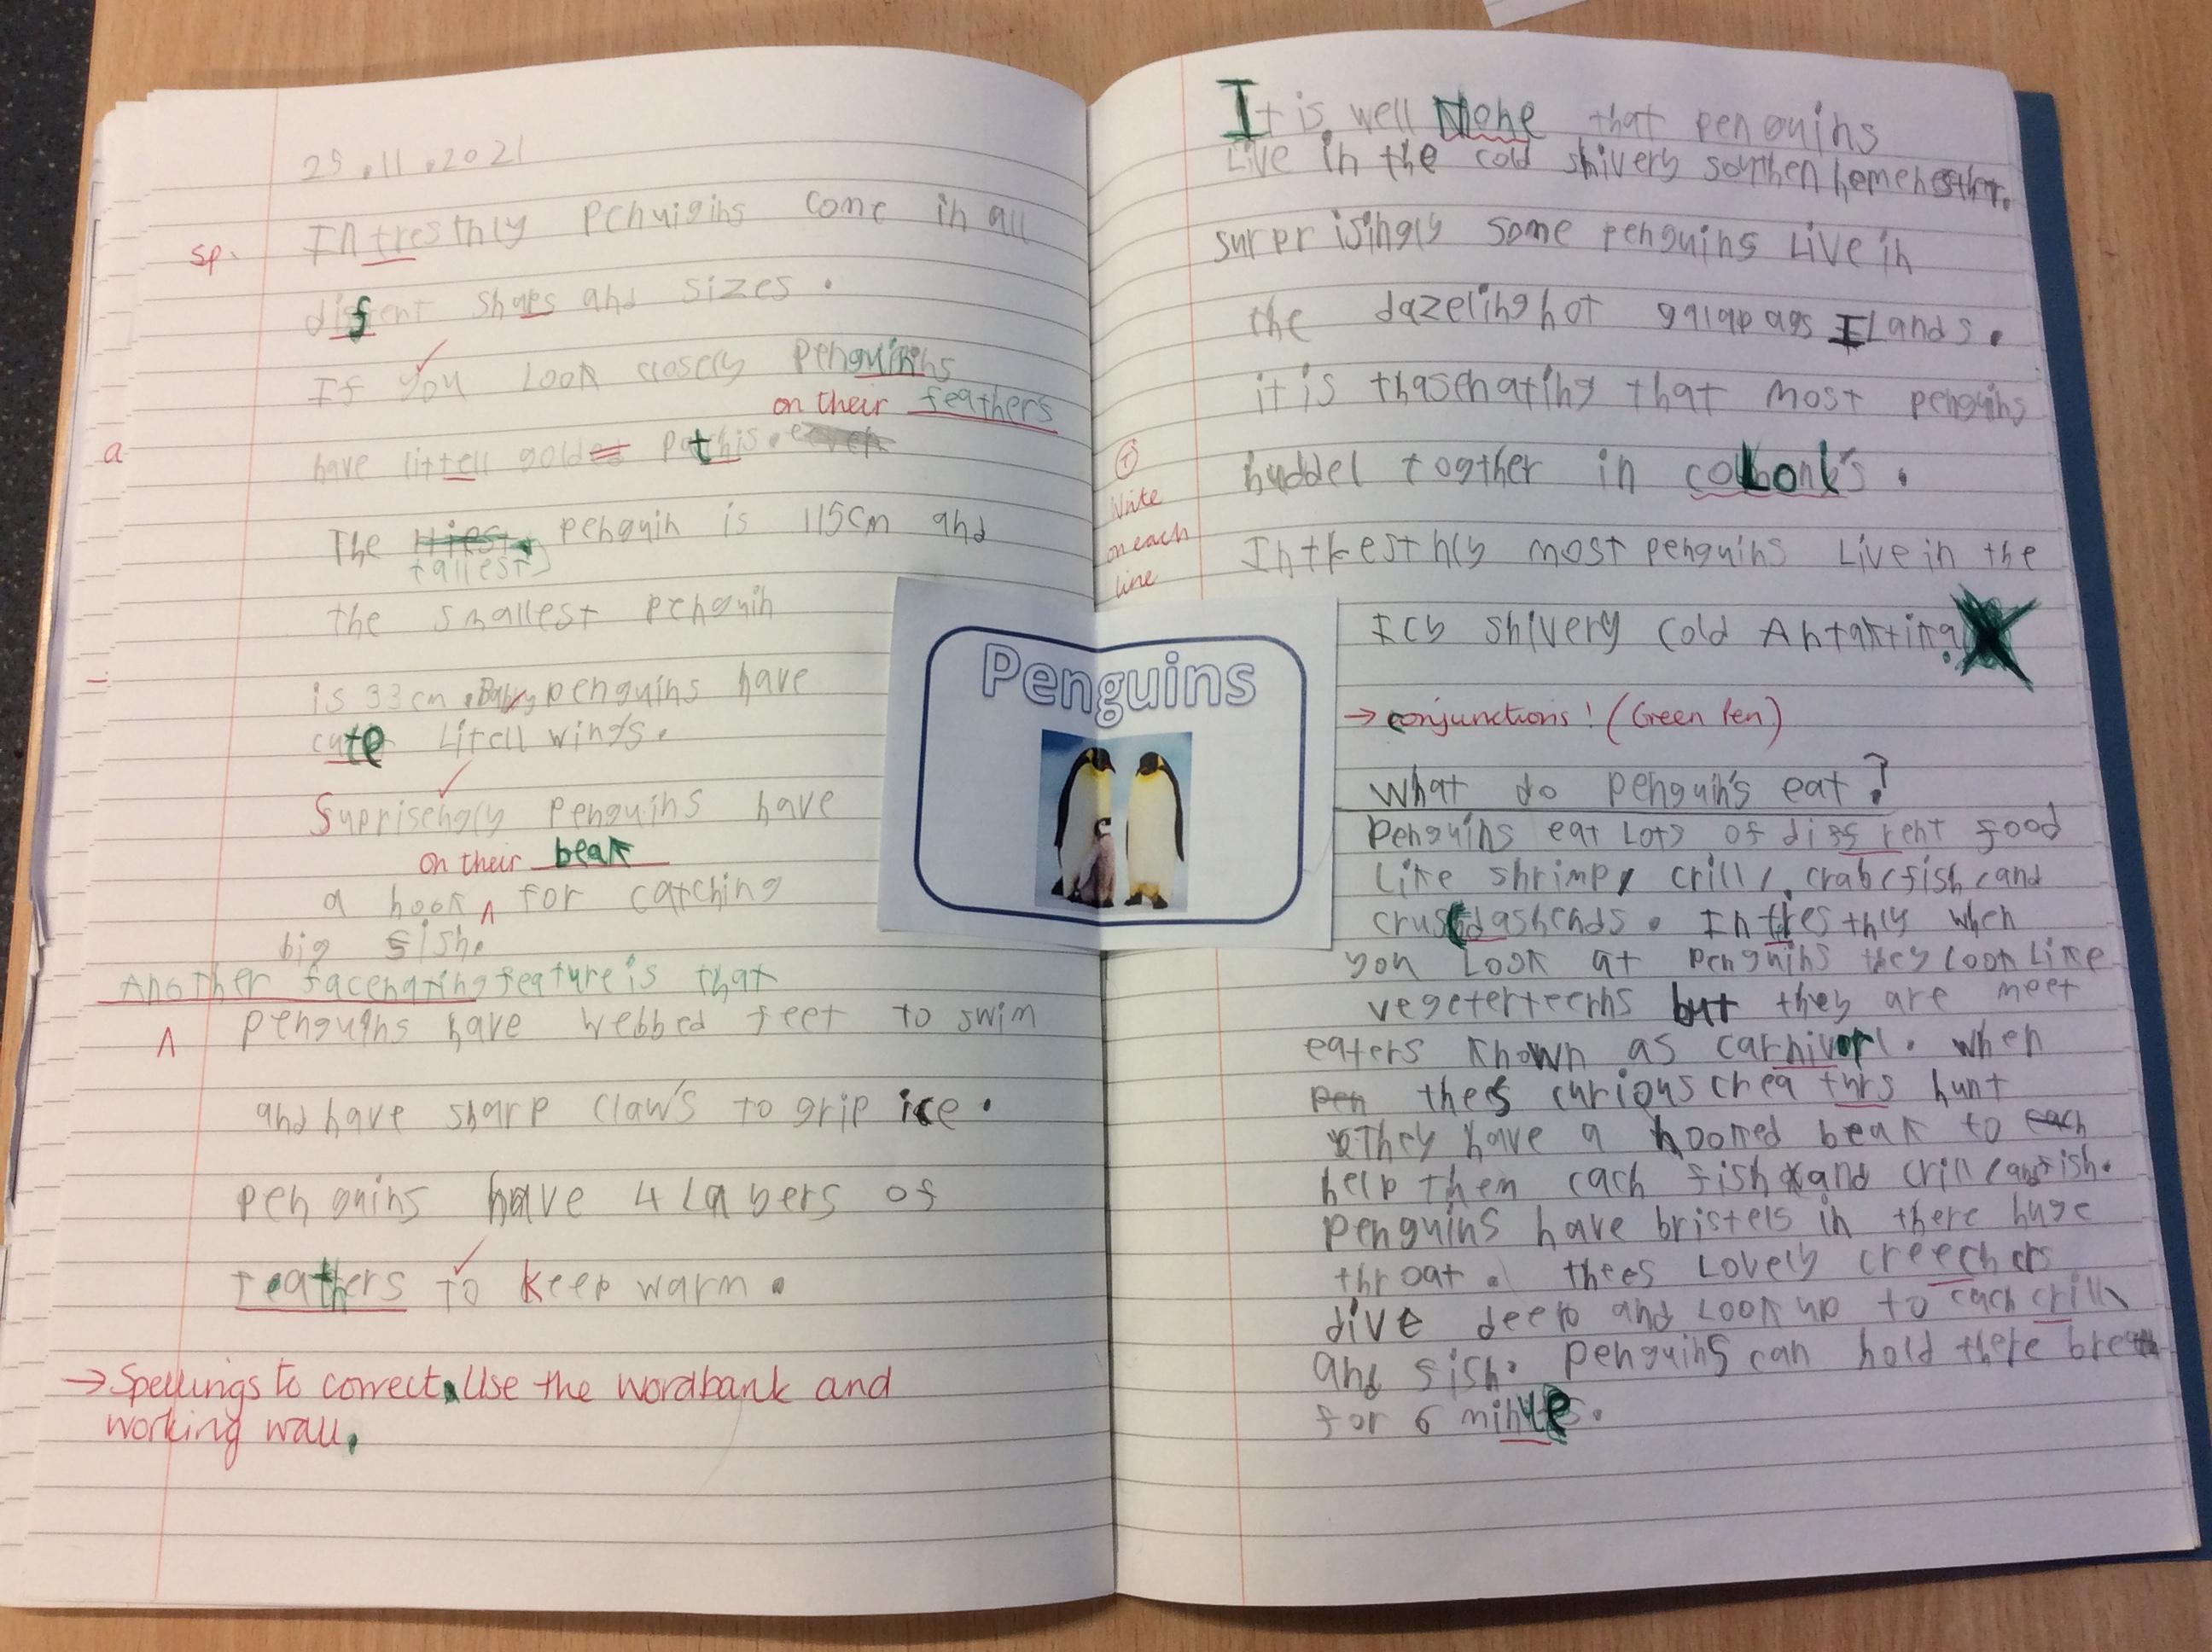 25.11.2021
sp.
Intresthly Penuigins come in all
diffent shaps and sizes.
If you Look closely Penguins
on their feathers
a
have littell gold patchis.
The tallest penguin is 115cm and
the smallest penguin
is 33cm. Baby penguins have
cute Litell wings.
Suprisengly penguins have
on their beak
a hook ^ for catching
big fish.
Another facenating feature is that
^ penguins have webbed feet to swim
and have sharp claws to grip ice.
penguins have 4 Layers of
feathers to keep warm.
→ Spellings to correct. Use the wordbank and
working wall.
Penguins
It is well None that penguins
Live in the cold shivery southen
surprisingly some penguins Live in
the dazeling hot galapags ILands.
it is thasenating that most penguins
huddel together in
Write
on each
line
Intresthly most penguins Live in the
Icy shivery cold Antartica
→ conjunctions! (Green Pen)
What do penguin's eat?
Penguins eat Lots of diffrent food
Like shrimp, crill, crab, fish, and
crustdasheads. Intresthly when
you Look at penguins they look Like
vegeterteerns but they are meet
eaters known as carnivorl. when
pen thees curious creaturs hunt
They have a hooked beak to each
help them cach fish and crill and fish.
penguins have bristels in there huge
throat. thees Lovely creechers
dive deep and Look up to cach crill
and fish. Penguins can hold there breath
for 6 minutes.